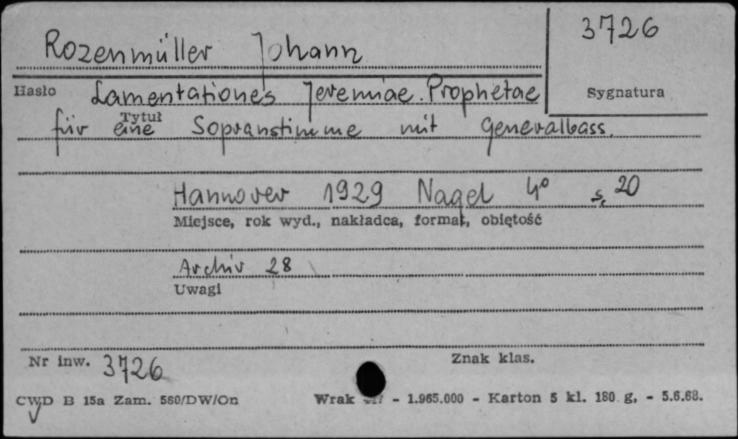 3726
Rozenmüller Johann
Hasło Lamentationes Jeremiae Prophetae
Sygnatura
Tytuł
für eine Sopranstimme mit Generalbass.
Hannover 1929 Nagel 4° s. 20
Miejsce, rok wyd., nakładca, format, obiętość
Archiv 28
Uwagi
Nr inw. 3726
Znak klas.
CWD B 15a Zam. 560/DW/On
Wrak - 1.965.000 - Karton 5 kl. 180 g. - 5.6.68.